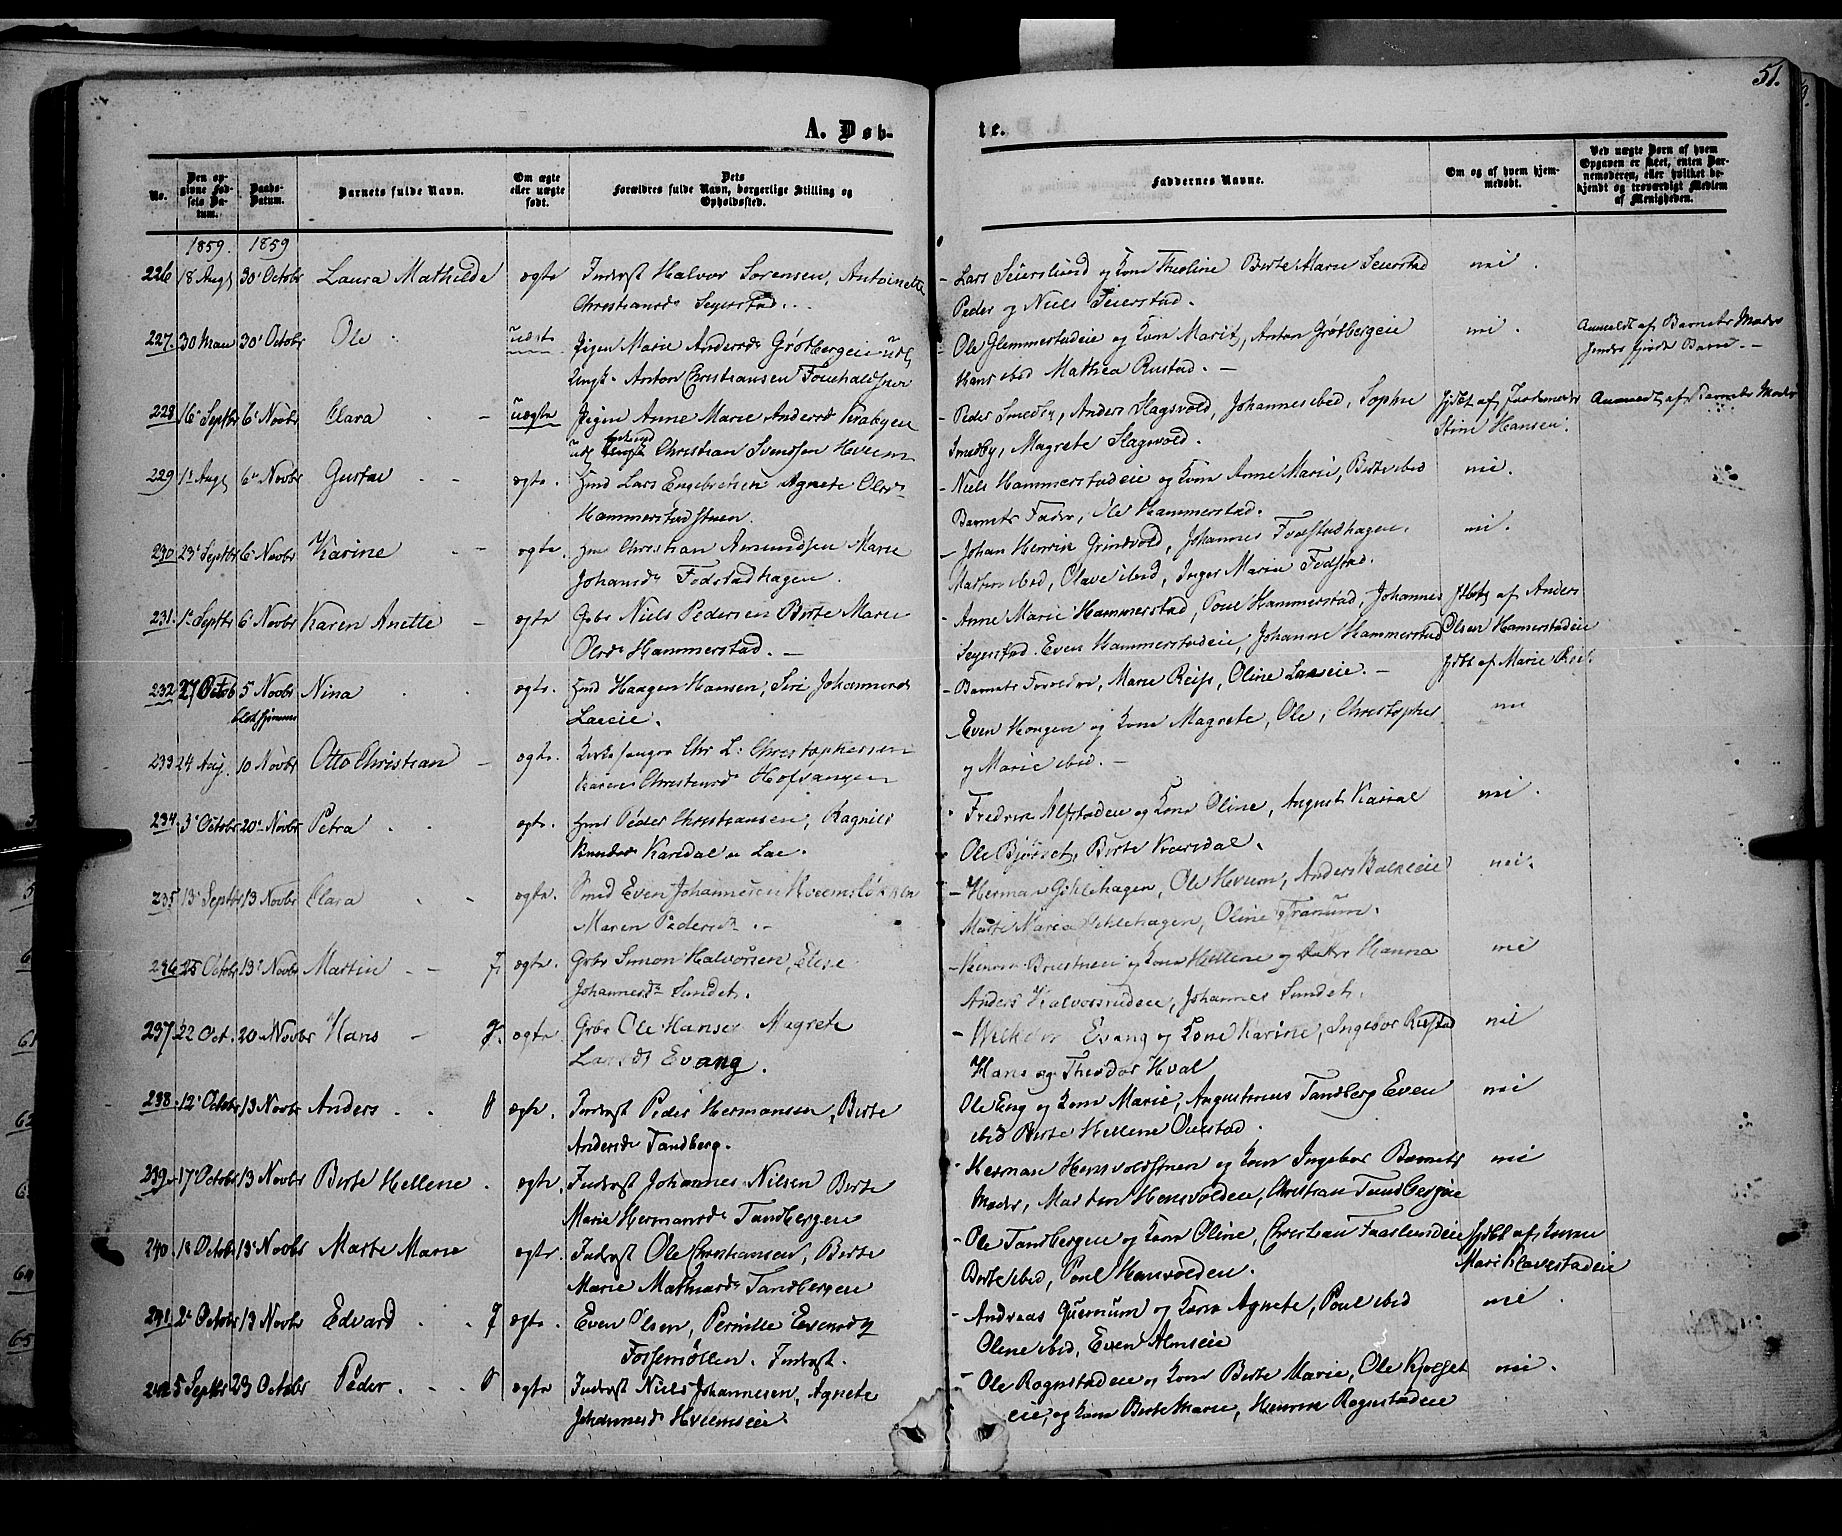 51.
A. Døb-
te.
No.
Den opgivne Fødsels Datum.
Daabs-Datum.
Barnets fulde Navn.
Om ægte eller uægte født.
Dets Forældres fulde Navn, borgerlige Stilling og Opholdssted.
Faddernes Navne.
Om og af hvem hjemmedøbt.
Ved uægte Børn af hvem Opgaven er skeet, enten Barnemoderen, eller hvilket bekjendt og troværdigt Medlem af Menigheden.
1859. 1859
226 18 Aug 30' Octobr Laura Mathilde ægte Inderst Halvor Sørensen, Antoinette
Christiansd Seyerstad.
- Lars Seierslund og Kone Theoline Berte Marie Seierstad nei.
Peder og Niels Seierstad.
227. 30 Mai 30' Octobr Ole
Pigen Marie Andersd Grøtbergeie
Ungk. Anton Christiansen
- Ole Glemmestadeie og Kone Marit, Anton Grøtbergeie nei.
Hans ibid Mathea Rustad. -
Anmeldt af Barnets Moder
228 16 Septbr 6' Novbr Clara uægte Pigen Anne Marie Andersd
Christian Svendsen
- Peder Smedby, Anders Hagsvold, Johannes ibid, Sophie
Smedby, Magrete Slagsvold.
Stine Hansen.
Anmeldt af Barnets Moder
229 1' Aug 6' Novbr Gustav ægte. Hmd Lars Engebretsen Agnete Olsd
Hammerstadstuen.
- Niels Hammerstadeie og Kone Anne Marie, Berte ibid nei.
Barnets Fader, Ole Hammerstad.
230 23' Septbr 6' Novbr Karine ægte. Hmd Christian Amundsen Marie
Johansd Fodstadhagen.
- Johan Henrik Grindvold, Johannes Fodstadhagen. nei.
Martin ibid, Olave ibid, Inger Marie Fodstad.
231. 1' Septbr 6' Novbr Karen Anette ægte Gbr Niels Pedersen Berte Marie
Olsd Hammerstad. -
- Anne Marie Hammerstad, Poul Hammerstad, Johannes hjdbt af Anders
Seyerstad. Even Hammerstadeie, Johanne Hammerstad Olsen Hammerstadeie
232 27 Octob 5 Novbr Nina ægte. Hmd Haagen Hansen, Siri Johannesd
Laeeie.
- Barnets Forældre, Marie Reiss, Oline Laeeie. - hjdbt af Marie Reis.
233 24 Aug. 10 Novbr Otto Christian ægte. Kirkesanger Chr L. Christophersen
Karen Christiansd Hofsangen
Even Hongen og Kone Magrete, Ole, Christopher nei
og Marie ibid. -
234. 3' Octobr 20' Novbr Petra ægte. Hmd Peder Christiansen, Ragnild
Knudsd Karsdal u Lae.
Fredrik Alfstadeie og Kone Oline, August Karsdal nei.
Ole Bjørset, Berte Karsdal.
235 13' Septbr 13 Novbr Clara ægte. Smed Even Johannesen
Maren Pedersd.
- Herman Gihlehagen, Ole Hveem, Anders Balkeeie nei.
Marte Maria Gihlehagen, Oline Tranum.
236 25 Octobr 13' Novbr Martin ægte. Gbr Simon Halvorsen, Elese
Johannesd Sundet.
og Kone Hellene og Datter Hanna nei
Anders Halvorsrudeie, Johannes Sundet.
237. 22 Oct. 20 Novbr Hans ægte. Gbr Ole Hansen Magrete
Larsd Evang.
Evang og Kone Karine, Ingebor Rustad nei
Hans og Theodor Hval
238. 12' Octobr 13 Novbr Anders ægte. Inderst Peder Hermansen, Berte
Andersd Tandberg.
Ole Eng og Kone Marie, Augustinus Tandberg Even nei
ibid Berte Hellene Ovestad.
239. 17' Octobr 13 Novbr Berte Hellene ægte. Inderst Johannes Nilsen Berte
Marie Hermansd Tandbergen
Herman Honsvoldstuen og Kone Ingebor Barnets nei
Moder, Marten Honsvoldeie, Christian Tandbergeie
240. 18 Octobr 13' Novbr Marte Marie ægte. Inderst Ole Christiansen, Berte
Marie Mathiasd Tandbergen
- Ole Tandbergen og Kone Oline, Christian Faaslundeie hjdbt af Konen
Berte ibid, Poul Honsvolden. Mari
241. 2' Octobr 13 Novbr Edvard ægte. Even Olsen, Pernille Evensd
Fossemøllen. Inderst.
- Andreas og Kone Agnete, Poul ibid nei
Olene ibid, Even Almseie
242 5 Septbr 23 Octobr Peder. ægte Inderst Niels Johannesen, Agnete
Johannesd Hveemseie
- Ole Rognstadeie og Kone Berte Marie, Ole Kjølset nei.
eie, og Kone Berte Marie, Henrik Rognstadeie